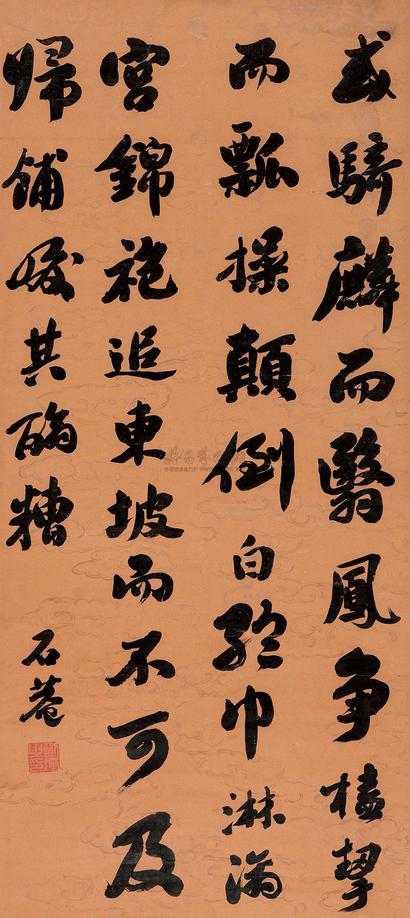 或騎麟而翳鳳爭榼挈
而瓢操顛倒白綸巾淋漓
宮錦袍追東坡而不可及
歸餔歠其醨糟
石菴